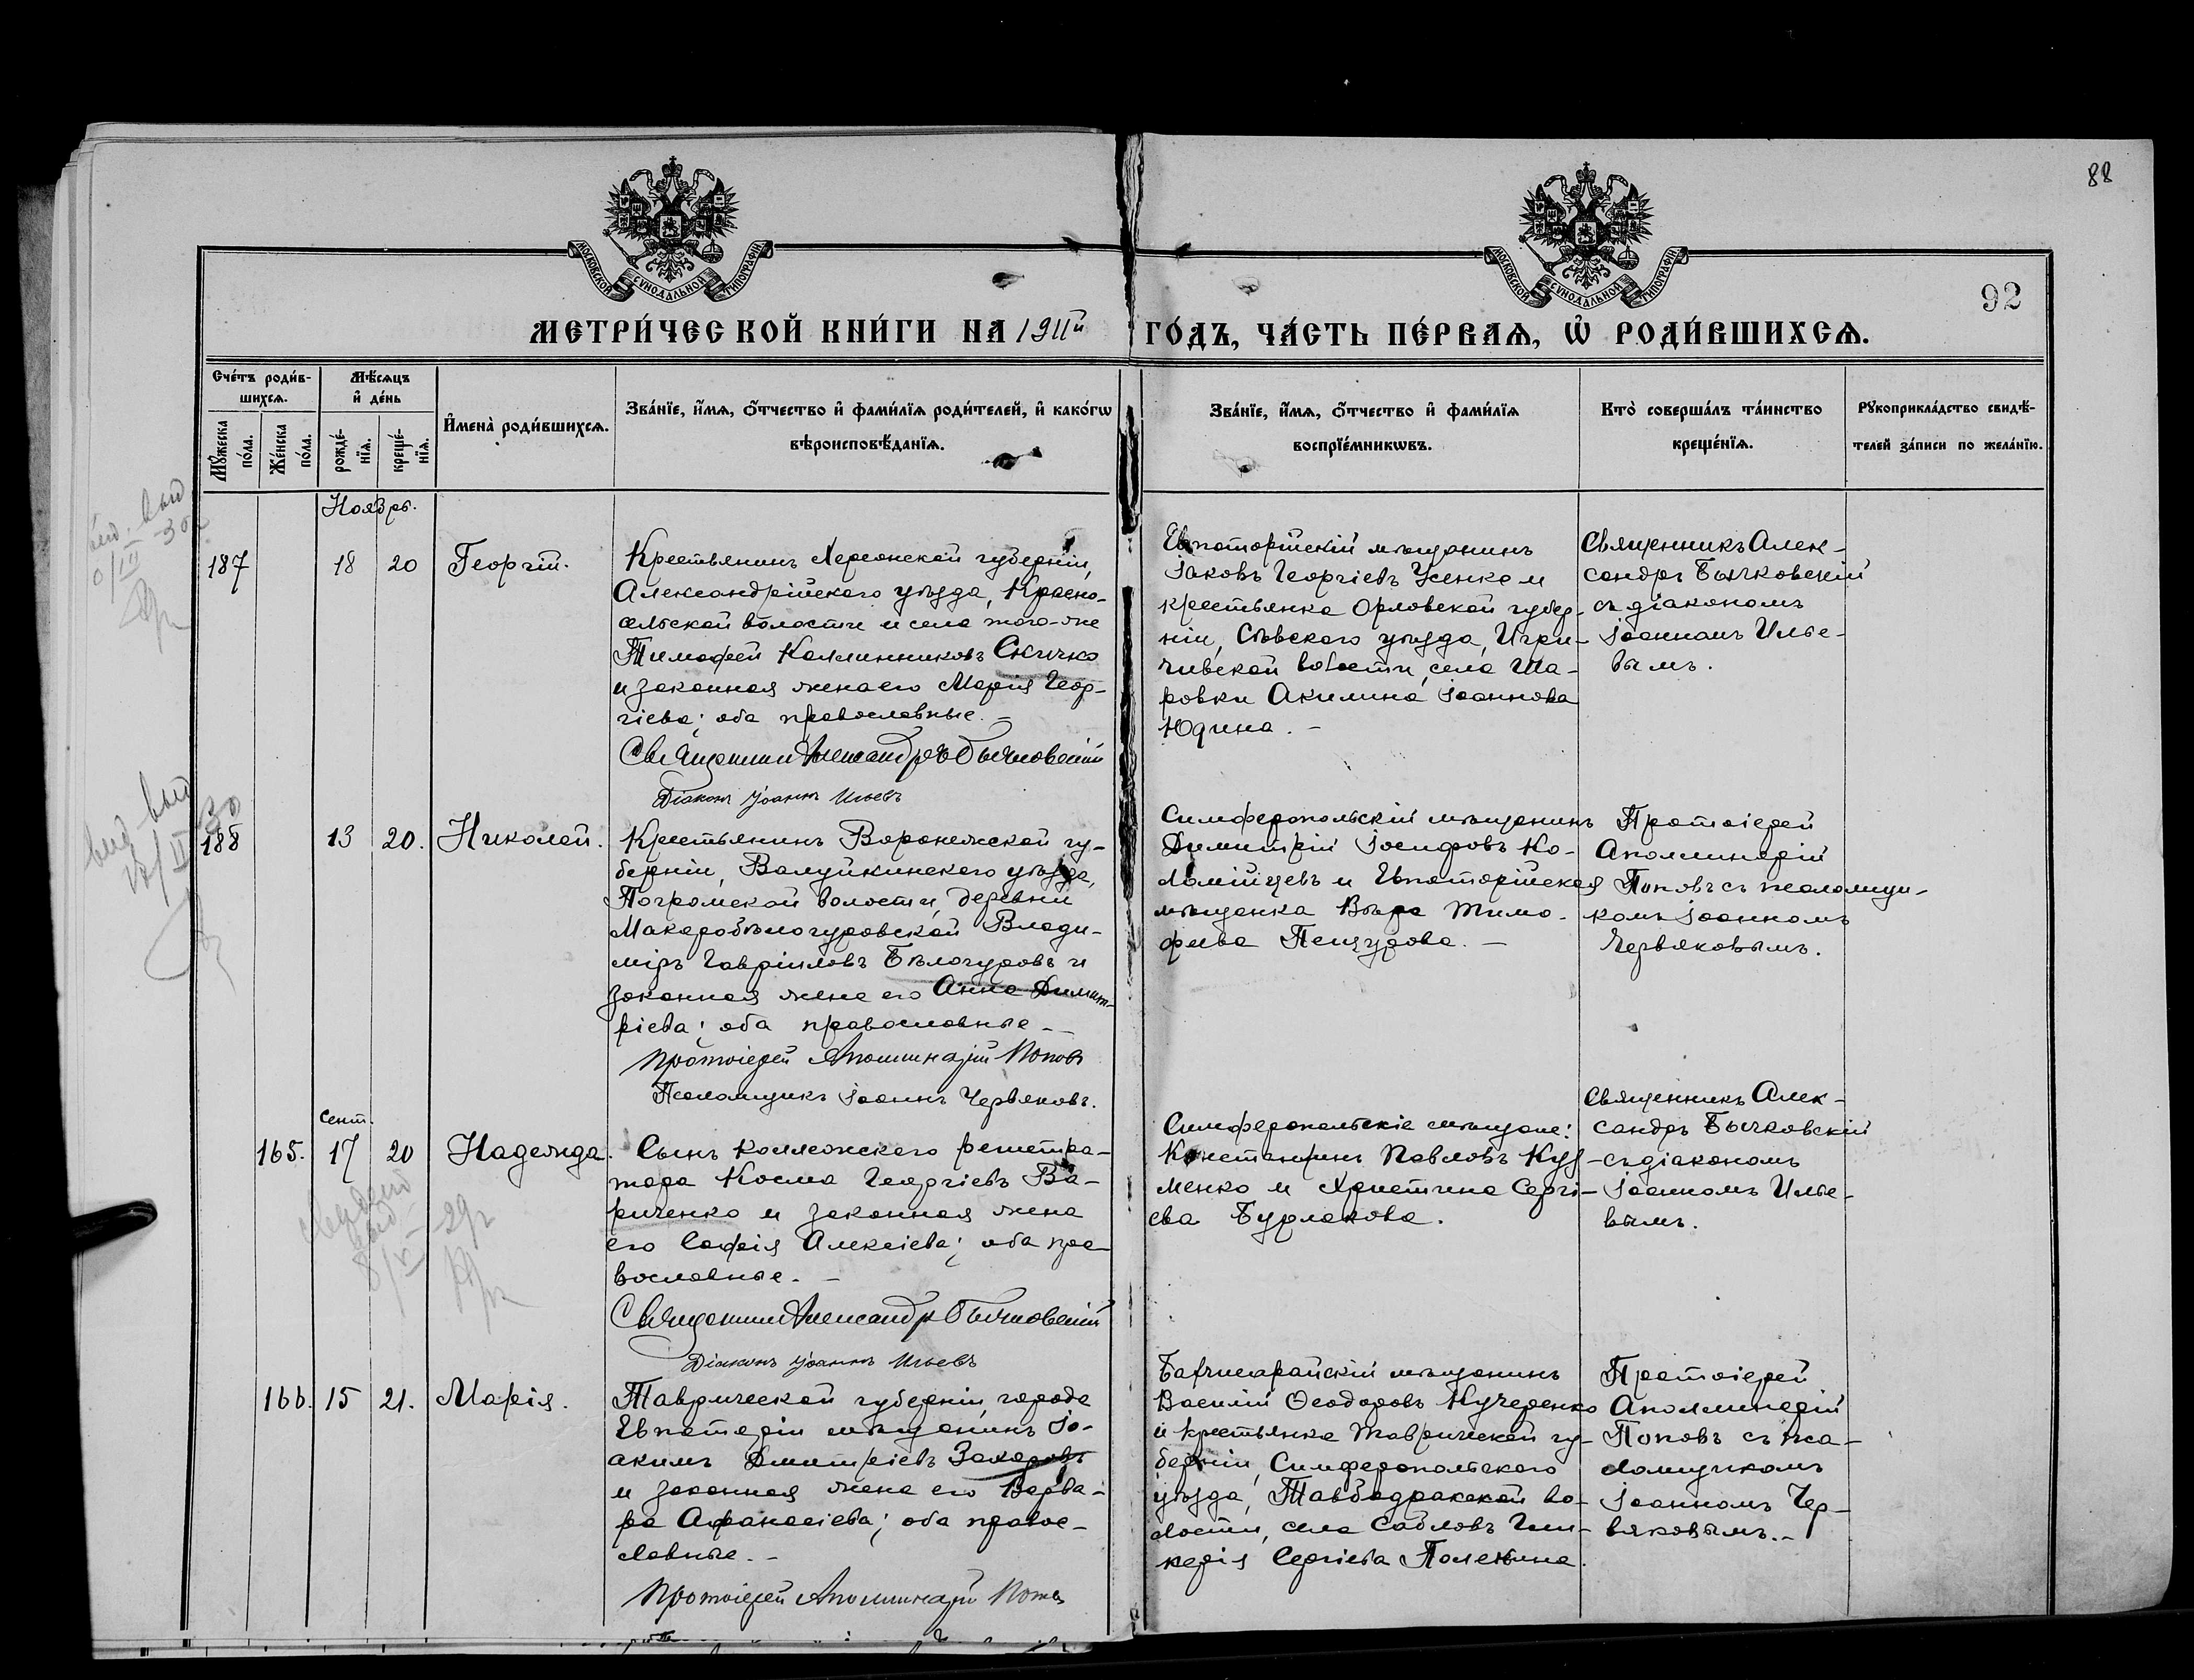 88
92
МОСКОВСКОЙ СѴНОДАЛЬНОЙ ТИПОГРАФІИ
МОСКОВСКОЙ СѴНОДАЛЬНОЙ ТИПОГРАФІИ
МЕТРИ́ЧЕСКОЙ КНИ́ГИ НА 1911й ГО́ДЪ, ЧА́СТЬ ПЕ́РВАѦ, Ѡ҆ РОДИ́ВШИХСѦ.
Сче́тъ роди́в-
шихсѧ.
Мꙋ́жеска по́ла.
Же́нска по́ла.
Мѣ́сѧцъ
и҆ де́нь
рожде́-
нїѧ.
креще́-
нїѧ.
И҆мена̀ роди́вшихсѧ.
Зва́нїе, и҆́мѧ, ѻ҆́тчество и҆ фами́лїѧ роди́телей, и҆ како́гѡ
вѣроисповѣ́данїѧ.
Зва́нїе, и҆́мѧ, ѻ҆́тчество и҆ фами́лїѧ
воспрїе́мникѡвъ.
Кто̀ соверша́лъ та́инство
креще́нїѧ.
Рꙋкоприкла́дство свидѣ́-
телей за́писи по жела́нїю.
Ноябрь.
187
18
20
Георгій.
Крестьянинъ Херсонской губерніи,
Александрійскаго уѣзда, Красно-
сельской волости и села того-же
Тимофей Каллинниковъ Скичко
и законная жена его Марія Геор-
гіева; оба православные. –
Священникъ Александръ Бычковскій
Діаконъ Іоаннъ Ильевъ
Евпаторійскій мѣщанинъ
Іаковъ Георгіевъ Усенко и
крестьянка Орловской губер-
ніи, Сѣвскаго уѣзда,
волости, села Ша-
ровки Акилина Іоаннова
Юдина. –
Священникъ Алек-
сандръ Бычковскій
съ діакономъ
Іоанномъ Илье-
вымъ.
188
13
20.
Николай.
Крестьянинъ Воронежской гу-
берніи, Валуйкинскаго уѣзда,
Погромской волости, деревни
Макаробѣлогуровской Влади-
міръ Гавріиловъ Бѣлогуровъ и
законная жена его Анна Димит-
ріева; оба православные –
Протоіерей Аполлинарій Поповъ
Псаломщикъ Іоаннъ Червяковъ.
Симферопольскій мѣщанинъ
Димитрій Іосифовъ Ко-
ломійцевъ и Евпаторійская
мѣщанка Вѣра Тимо-
феева. –
Протоіерей
Аполлинарій
Поповъ съ псаломщи-
комъ Іоанномъ
Червяковымъ.
Сент.
165.
17
20
Надежда.
Сынъ коллежскаго регистра-
тора Косма Георгіевъ Ва-
риченко и законная жена
его Софія Алексіева; оба пра-
вославные. –
Священникъ Александръ Бычковскій
Діаконъ Іоаннъ Ильевъ
Симферопольскіе мѣщане:
Константинъ Павловъ Куз-
менко и Христина Сергі-
ева Бурлакова.
Священникъ Алек-
сандръ Бычковскій
съ діакономъ
Іоанномъ Илье-
вымъ.
166.
15
21.
Марія.
Таврической губерніи, города
Евпаторіи мѣщанинъ Іо-
акимъ Димитріевъ Захаровъ
и законная жена его Варва-
ра Афанасіева; оба правос-
лавные. –
Протоіерей Аполлинарій Поповъ
Бахчисарайскій мѣщанинъ
Василій Ѳеодоровъ Кучеренко
и крестьянка Таврической гу-
берніи, Симферопольскаго
уѣзда, во-
лости, села Сабловъ Гли-
керія Сергіева
Протоіерей
Аполлинарій
Поповъ съ пса-
ломщикомъ
Іоанномъ Чер-
вяковымъ. –